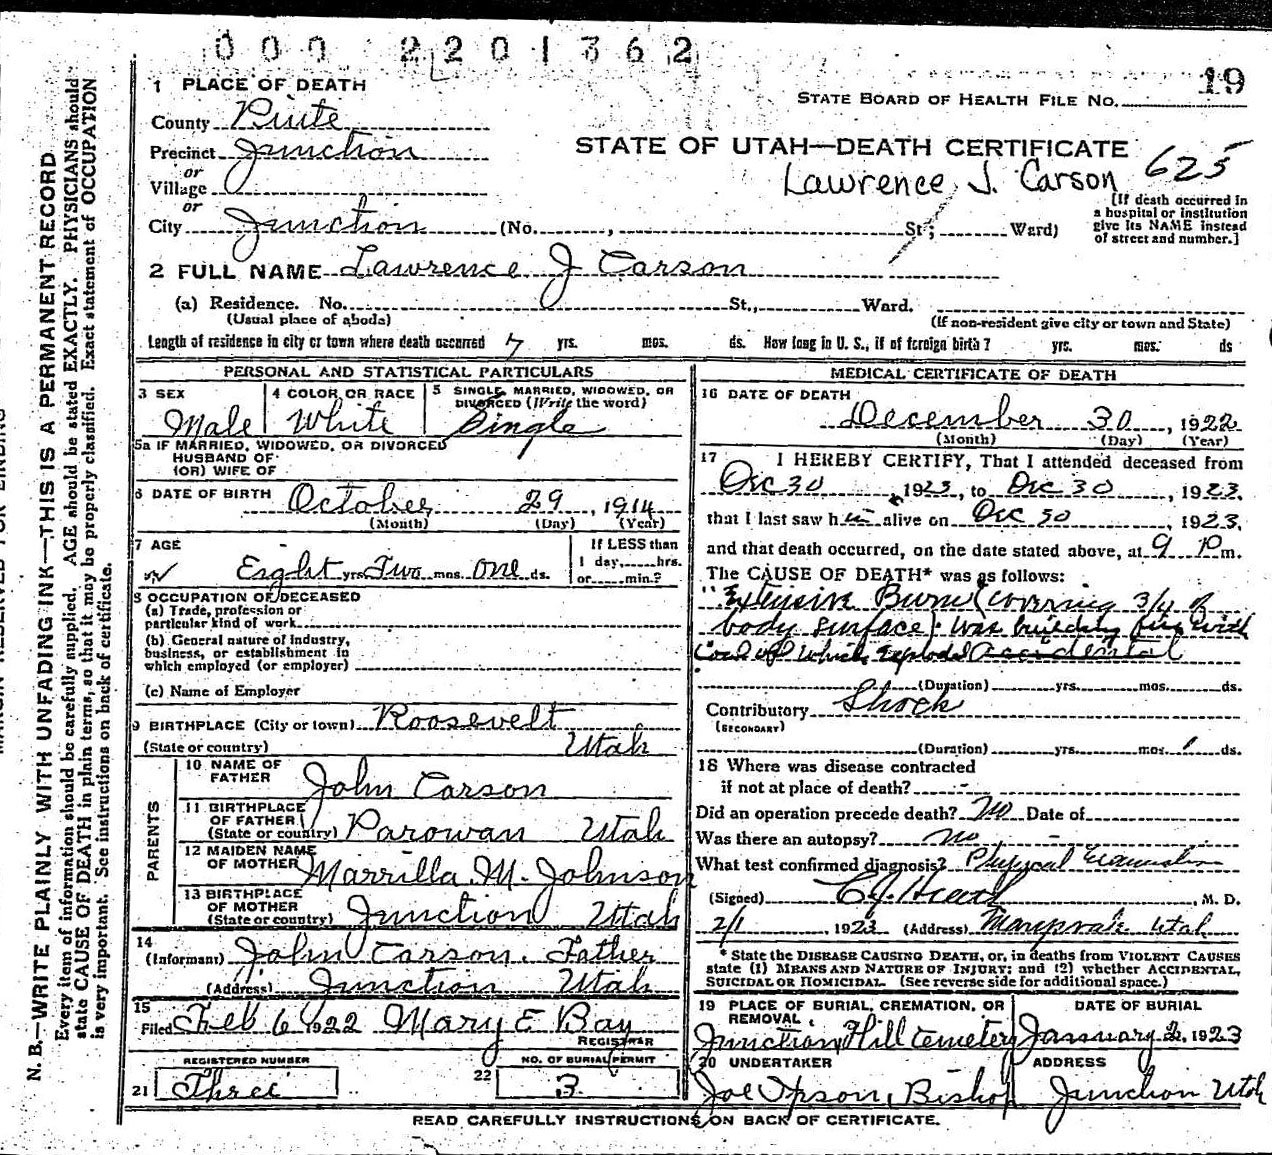 000 2201362
19
1 PLACE OF DEATH
STATE BOARD OF HEALTH FILE NO.
County Piute
Precinct Junction
STATE OF UTAH—DEATH CERTIFICATE 625
or
Village
Lawrence J. Carson
or
City Junction (No. , St; Ward)
[If death occurred in
a hospital or institution
give its NAME instead
of street and number.]
2 FULL NAME Lawrence J Carson
(a) Residence. No. St., Ward.
(Usual place of aboda) (If non-resident give city or town and State)
Length of residence in city or town where death occurred 7 yrs. mos. ds. How long in U. S., if of foreign birth? yrs. mos. ds
PERSONAL AND STATISTICAL PARTICULARS
3 SEX
Male
4 COLOR OR RACE
White
5 SINGLE, MARRIED, WIDOWED, OR
DIVORCED (Write the word)
Single
5a IF MARRIED, WIDOWED, OR DIVORCED
HUSBAND OF
(OR) WIFE OF
6 DATE OF BIRTH October 29, 1914
(Month) (Day) (Year)
7 AGE
Eight yrs Two mos. one ds.
If LESS than
1 day, hrs.
or min.?
8 OCCUPATION OF DECEASED
(a) Trade, profession or
particular kind of work
(b) General nature of industry,
business, or establishment in
which employed (or employer)
(c) Name of Employer
9 BIRTHPLACE (City or town) Roosevelt
(State or country) Utah
PARENTS
10 NAME OF
FATHER John Carson
11 BIRTHPLACE
OF FATHER
(State or country) Parowan Utah
12 MAIDEN NAME
OF MOTHER Marrilla M. Johnson
13 BIRTHPLACE
OF MOTHER
(State or country) Junction Utah
14
(Informant) John Carson. Father
(Address) Junction Utah
15
Filed Feb 6 1922 Mary E Bay
REGISTRAR
REGISTERED NUMBER
21 Three
NO. OF BURIAL PERMIT
22 3
MEDICAL CERTIFICATE OF DEATH
16 DATE OF DEATH
December 30, 1922
(Month) (Day) (Year)
17 I HEREBY CERTIFY, That I attended deceased from
Dec 30, 1923, to Dec 30, 1923,
that I last saw him alive on Dec 30, 1923,
and that death occurred, on the date stated above, at 9 P m.
The CAUSE OF DEATH* was as follows:
Extensive Burn (covering 3/4 of
body surface). Was building fire with
Coal oil which exploded accidental
(Duration) yrs. mos. ds.
Contributory Shock
(SECONDARY)
(Duration) yrs. mos. 1 ds.
18 Where was disease contracted
if not at place of death?
Did an operation precede death? No Date of
Was there an autopsy? no
What test confirmed diagnosis? Physical Examination
(Signed) , M. D.
2/1, 1923 (Address) Marysvale Utah
* State the DISEASE CAUSING DEATH, or, in deaths from VIOLENT CAUSES
state (1) MEANS AND NATURE OF INJURY; and (2) whether ACCIDENTAL,
SUICIDAL OR HOMICIDAL. (See reverse side for additional space.)
19 PLACE OF BURIAL, CREMATION, OR
REMOVAL
Junction Hill Cemetery
DATE OF BURIAL
January 2, 1923
20 UNDERTAKER
Joe Ipson, Bishop
ADDRESS
Junction Utah
READ CAREFULLY INSTRUCTIONS ON BACK OF CERTIFICATE.
N. B.—WRITE PLAINLY WITH UNFADING INK—THIS IS A PERMANENT RECORD
Every item of information should be carefully supplied. AGE should be stated EXACTLY. PHYSICIANS should
state CAUSE OF DEATH in plain terms, so that it may be properly classified. Exact statement of OCCUPATION
is very important. See instructions on back of certificate.